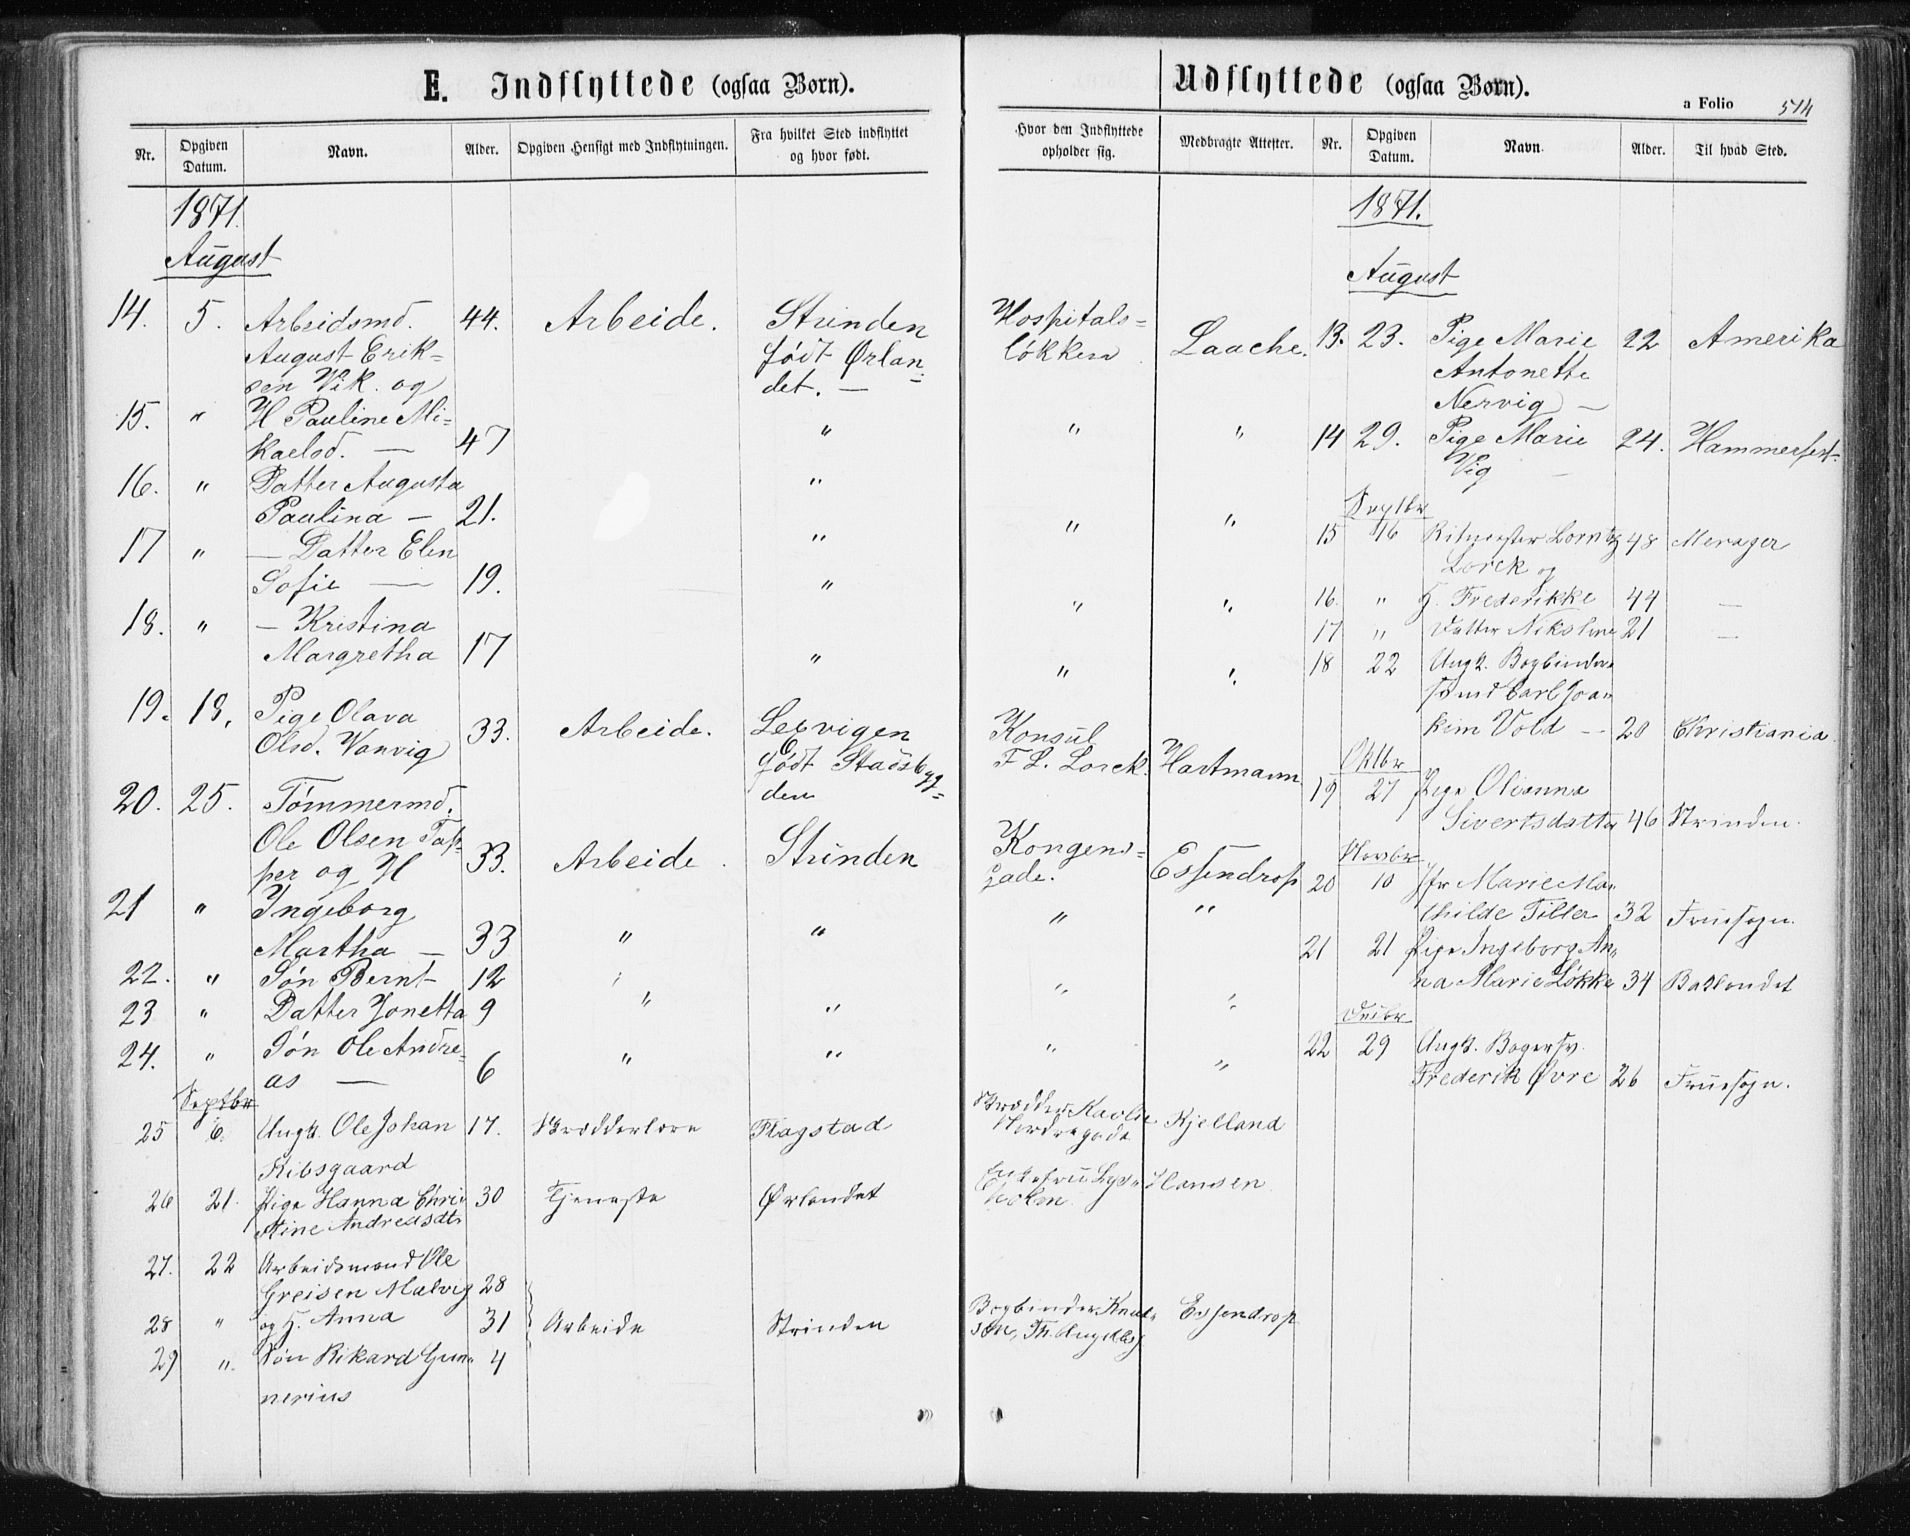 E. Indflyttede (ogsaa Børn).
Nr. Opgiven Datum. Navn. Alder. Opgiven Hensigt med Indflytningen. Fra hvilket Sted indflyttet og hvor født.
1871.
August
14. 5. Arbeidsmd. 44. Arbeide. Strinden
August Erik= født Ørlan=
sen Vik. og det. —
15. " H Pauline Mi=
kaelsd. — 47 "
16. " Datter Augusta "
Paulina — 21.
17 " — Datter Elen "
Sofie — 19. "
18. " — Kristina
Margretha 17 "
19. 18. Pige Olava 33. Arbeide. Lexvigen
Olsd. Vanvig født Stadsbyg=
den
20. 25. Tømmermd.
Ole Olsen Tap=
per og H 33. Arbeide. Strinden
21 " Ingeborg
Martha — 33 " "
22. " Søn Bernt 12 "
23 " Datter Jonetta 9 " "
24. " Søn Ole Andre= " "
as — 6
Septbr
25 6. Ungk. Ole Johan 17. Skrædderlære Flagstad
Ribsgaard
26 21. Pige Hanna Chri= 30 Tjeneste Ørlandet
stine Andreasdtr
27. 22 Arbeidsmand Ole
Greisen Malvig 28
28 " og H. Anna 31 Arbeide Strinden
29 " Søn Rikard Gun= 4
nerius
Udflyttede (ogsaa Børn).
a Folio 514
Hvor den Indflyttede opholder sig. Medbragte Attester. Nr. Opgiven Datum. Navn. Alder. Til hvad Sted.
1871.
August
Hospitals=
løkken Laache. 13. 23. Pige Marie 22 Amerika
Antonette
Nervig —
" " 14 29. Pige Marie 24. Hammerfest.
Vig —
Septbr
" " 15 16 Ritmester Lorntz 48 Merager
Lorck og
" " 16. " H. Frederikke 44 —
17 " Datter Nikoline 21 —
" " 18 22 Ungk. Bogbinder=
svend Carl Joa=
Konsul kim Vold — 20 Christiania
F L. Lorck. Hartmann Oktbr
19 27 Pige Olianna
Sivertsdatter 46 Strinden.
Kongens= Novbr
gade. Essendrop 20 10 Jfr Marie Ma=
" " thilde Tiller 32 Fruesogn.
21 21 Pige Ingeborg An=
" " na Marie Løkke 34 Baklandet
Decbr
" " 22 29 Ungk. Bagersv.
Frederik Øvre 26 Fruesogn.
Skrædder Kavlie
Nordregade Kjelland
Enkefru Lys=
holm Hansen
Bogbinder Knud=
sen, Th. Angellsg Essendrop